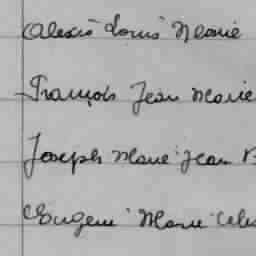 Alexis Louis Marie
François Jean Marie
Joseph Marie Jean
Eugène Marie